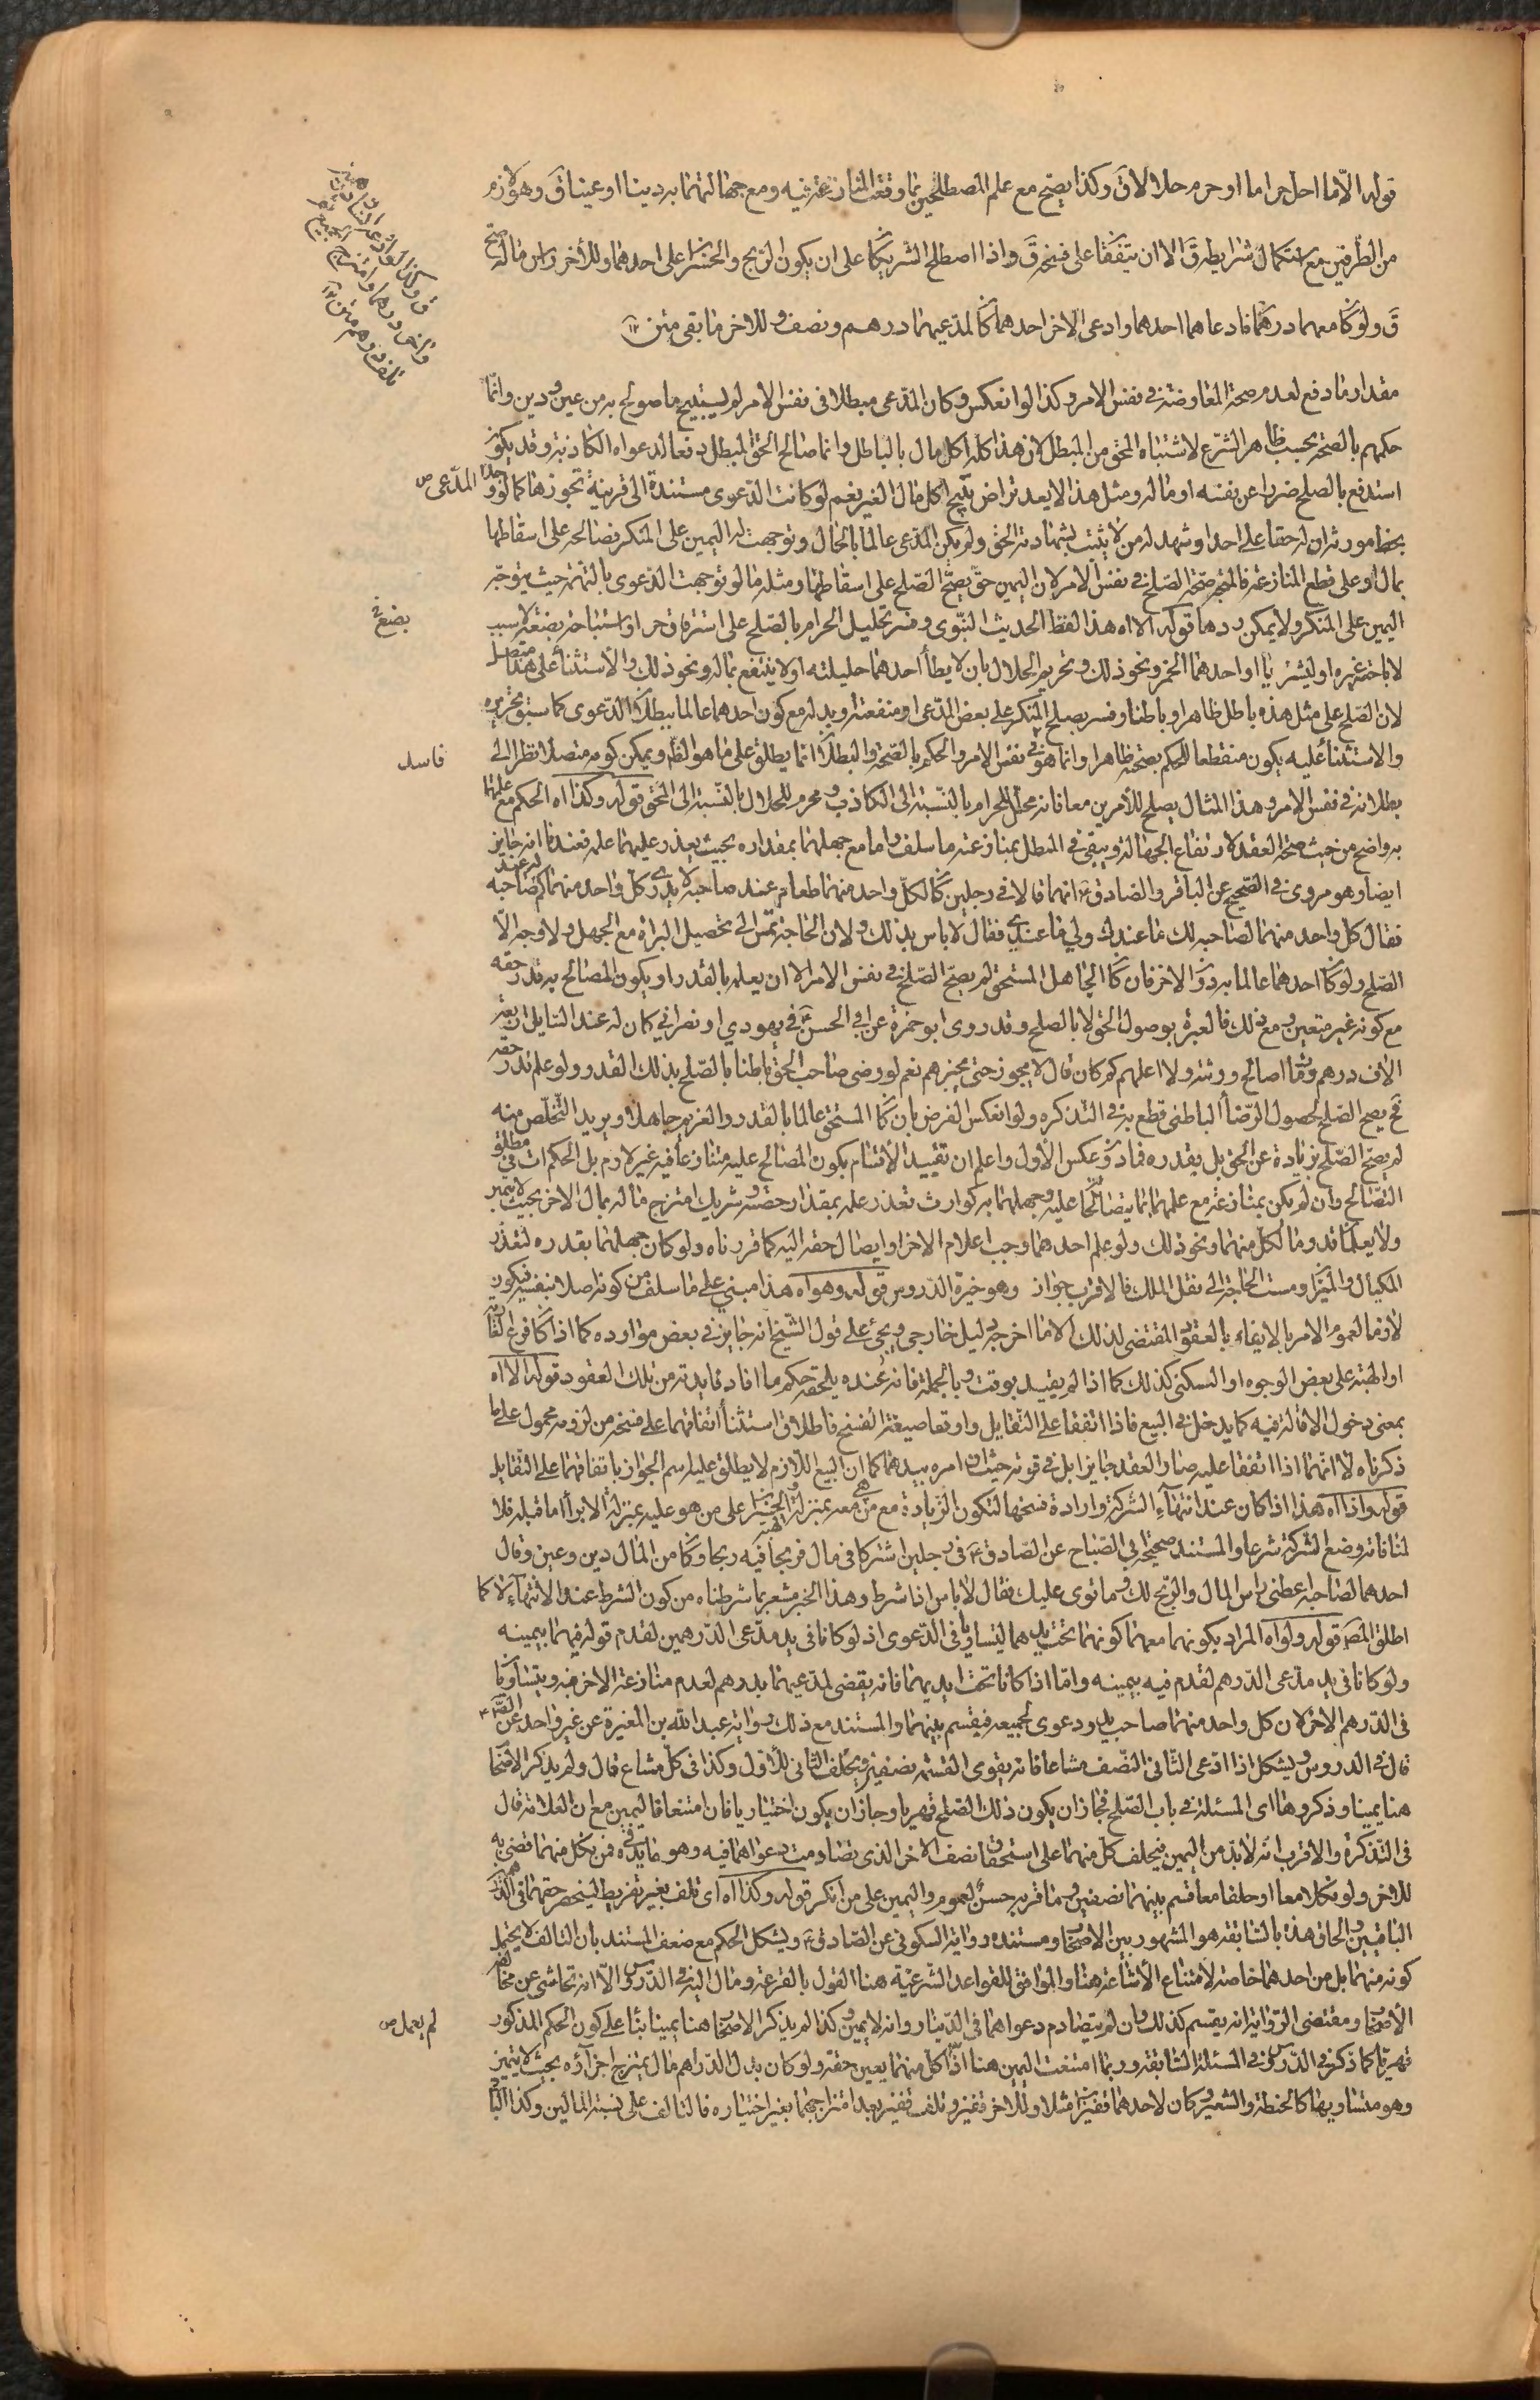 قوله الّا ما احل حراما او حرم حلالا ق وكذا يصح مع علم المصطلحين بما وقعت المنازعة فيه ومع جهالتهما به دينا او عينا ق وهو لازم
من الطّرفين مع استكمال شرايطه ق الا ان يتفقا على فسخه ق واذا اصطلح الشريكان على ان يكون الربح والخسران على احدهما وللآخر راس ماله صح
ق ولو كان معهما درهمان فادعاهما احدهما وادعى الاخر احدهما كان لمدعيهما درهم ونصف وللاخر ما بقى متن
مقدار ما دفع لعدم صحة المعاوضة فى نفس الامر وكذا لو انعكس وكان المدّعى مبطلا فى نفس الامر لم يستبح ما صولح به من عين ودين وانّما
حكمهم بالصحة بحسب ظاهر الشرع لاشتباه المحق من المبطل لان هذا كله اكل مال بالباطل وانما صالح المحق المبطل دفعا لدعواه الكاذبة وقد يكون
استدفع بالصلح ضررا عن نفسه او ماله ومثل هذا لا يعد تراض يبيح اكل مال الغير نعم لو كانت الدّعوى مستندة الى قرينة تجوزها كما لو وجد المدّعى
بخط مورثه ان له حقا على احد او شهد له من لا يثبت بشهادته الحق ولم يكن المدّعى عالما بالحال وتوجهت له اليمين على المنكر فصالحه على اسقاطها
بمال او على قطع المنازعة فالمتجه صحة الصّلح فى نفس الامر لان اليمين حقّ يصحّ الصّلح على اسقاطها ومثله ما لو توجهت الدّعوى بالتهمة حيث يتوجّه
اليمين على المنكر ولا يمكن ردها قوله الا اه هذا لفظ الحديث النبّوى وفسر تحليل الحرام بالصّلح على استرقاق حر او استباحة بضع لا سبب
لاباحته غيره او ليشربا او احدهما الخمر ونحو ذلك وتحريم الحلال بان لا يطأ احدهما حليلته او لا ينتفع بماله ونحو ذلك والاستثناء على هذا متصل
لان الصّلح على مثل هذه باطل ظاهرا وباطنا وفسر بصلح المنكر على بعض المدّعى او منفعته او بدله مع كون احدهما عالما ببطلان الدّعوى كما سبق تحريره
والاستثناء عليه يكون منقطعا للحكم بصحته ظاهرا وانما هو فى نفس الامر والحكم بالصّحة والبطلان انما يطلق على ما هو الظّ ويمكن كونه متصلا نظرا الى
بطلانه فى نفس الامر وهذا المثال يصلح للأمرين معا فانه محلّل للحرام بالنّسبة الى الكاذب ومحرم للحلال بالنّسبة الى المحق قوله وكذا اه الحكم مع علمهما
به واضح من حيث صحة العقد لارتفاع الجهالة ويبقى فى المبطل بمنازعته ما سلف واما مع جهلهما بمقداره بحيث يعذر عليهما علمه فعندنا انه جايز
ايضا وهو مروى فى الصّحيح عن الباقر والصّادق ع انهما قالا فى رجلين كان لكلّ واحد منهما طعام عند صاحبه لا يدرى كل واحد منهما كم له عند صاحبه
فقال كل واحد منهما لصاحبه لك ما عندك ولى ما عندى فقال لا باس بذلك ولان الحاجة تمسّ الى تحصيل البراءة مع الجهل ولا وجه الّا
الصّلح ولو كان احدهما عالما به دون الاخر فان كان الجاهل المستحق لم يصحّ الصّلح فى نفس الامر الا ان يعلمه بالقدر او يكون المصالح به قدر حقه
مع كونه غير متعين ومع ذلك فالعبرة بوصول الحق لا بالصلح وقد روى ابو حمزة عن ابى الحسن ع فى يهودي او نصرانى كان له عند اربعة
الاف درهم ومات ا اصالح ورثته ولا اعلمهم كم كان قال لا يجوز حتى يخبرهم نعم لو رضى صاحب الحقّ باطنا بالصّلح بذلك القدر ولو علم قدر حقه
صح الصّلح لحصول الرّضا الباطنى قطع به فى التذكره ولو انعكس الفرض بان كان المستحق عالما بالقدر والغريم جاهلا ويريد التّخلّص منه
لم يصحّ الصّلح بزيادة عن الحق بل بقدره فما دون عكس الأول واعلم ان تقييد الأقسام بكون المصالح عليه متنازعا فيه غير لازم بل الحكم ات فى مطلق
التصالح وان لم يكن بمنازعة مع علمهما بما يتصالحان عليه وجهلهما به كوارث تعذر علمه بمقدار حصته وشريك امتزج ماله بمال الاخر بحيث لا يتميز
ولا يعلمان قدر ما لكل منهما ونحو ذلك ولو علم احدهما وجب اعلام الاخر او ايصال حقه اليه كما قررناه ولو كان جهلهما بقدره لتعذر
المكيال والميزان ومست الحاجة الى نقل الملك فالاقرب جواز وهو خيرة الدّروس قوله وهو اه هذا مبنى على ما سلف من كونه اصلا بنفسه فيكون
لازما لعموم الامر بالايفاء بالعقود المقتضى لذلك الا ما اخرجه دليل خارجى ويجئ على قول الشّيخ انه جايز فى بعض موارده كما اذا كان فرع العارية
او الهبة على بعض الوجوه او السكنى كذلك كما اذا لم يقيد بوقت وبالجملة فانه عنده يلحقه حكم ما افاد فايدته من تلك العقود قوله الا اه
بمعنى دخول الاقالة فيه كما يدخل فى البيع فاذا اتفقا على التّقايل واوقعا صيغة الفسخ فاطلاق استثناء اتفاقهما على فسخه من لزومه محمول على ما
ذكرناه لا انهما اذا اتفقا عليه صار العقد جايزا بل فى قوته حيث ان امره بيدهما كما ان البيع اللّازم لا يطلق عليه اسم الجواز باتفاقهما على التقايل
قوله واذا اه هذا اذا كان عند انتهاء الشركة وارادة فسخها لتكون الزّيادة مع من هى معه بمنزلة الهبة والخسران على من هو عليه بمنزلة الابراء اما قبله فلا
لمنافاته وضع الشركة شرعا والمستند صحيحة ابى الصّباح عن الصّادق ع فى رجلين اشتركا فى مال فربحا فيه ربحا وكان من المال دين وعين وقال
احدهما لصاحبه اعطنى راس المال والربح لك وما توى عليك فقال لا باس اذا شرط وهذا الخبر مشعر بما شرطناه من كون الشرط عند الانتهاء لا كما
اطلق المص قوله ولو اه المراد بكونهما معهما كونهما تحت يدهما ليتساويا فى الدّعوى اذ لو كانا فى يد مدّعى الدّرهمين لقدم قوله فيهما بيمينه
ولو كانا فى يد مدّعى الدّرهم لقدم فيه بيمينه وامّا اذا كانا تحت ايديهما فانه يقضى لمدّعيهما بدرهم لعدم منازعة الاخر فيه ويتساويان
فى الدّرهم الاخر لان كل واحد منهما صاحب يد ودعوى لجميعه فيقسم بينهما والمستند مع ذلك رواية عبد الله بن المغيرة عن غير واحد عن الصّ ع
قال فى الدروس ويشكل اذا ادّعى الثّانى النّصف مشاعا فانه يقوى القسمة نصفين ويحلف الثّانى للأوّل وكذا فى كلّ مشاع قال ولم يذكر الأصحاب
هنا يمينا وذكروها اى المسئلة فى باب الصّلح فجاز ان يكون ذلك الصّلح قهريا وجاز ان يكون اختياريا فان امتنعا فاليمين مع ان العلامة قال
فى التّذكرة والاقرب انه لا بدّ من اليمين فيحلف كلّ منهما على استحقاق نصف الاخر الذى تصادمت دعواهما فيه وهو ما فى يده فمن نكل منهما قضى به
للاخر ولو نكلا معا او حلفا معا قسم بينهما نصفين وما قربه حسن لعموم واليمين على من انكر قوله وكذا اه اى تلف بغير تفريط لينحصر حقهما فى الدّرهمين
الباقيين والحاق هذه بالسّابقة هو المشهور بين الاصحاب ومستنده رواية السكونى عن الصّادق ع ويشكل الحكم مع ضعف المستند بان التّالف لا يحتمل
كونه منهما بل من احدهما خاصة لامتناع الاشاعة هنا والموافق للقواعد الشّرعية هنا القول بالقرعة ومال اليه فى الدّروس الّا انه تحاشى عن مخالفة
الأصحاب ومقتضى الرّواية انه يقسم كذلك وان لم يتصادم دعواهما فى الدّينار وانه لا يمين وكذا لم يذكر الاصحاب هنا يمينا بناء على كون الحكم المذكور
قهريّا كما ذكر فى الدّروس فى المسئلة السّابقة وربما امتنعت اليمين هنا اذا كل منهما يعين حقه ولو كان بدل الدّراهم مال يمتزج اجزاؤه بحيث لا يتميز
وهو متساويها كالحنطة والشعير وكان لاحدهما قفيزان مثلا وللاخر قفيز وتلف قفيز بعد امتزاجهما بغير اختياره فالتالف على نسبة المالين وكذا الباقى
بضع
فاسد
لم يعمل